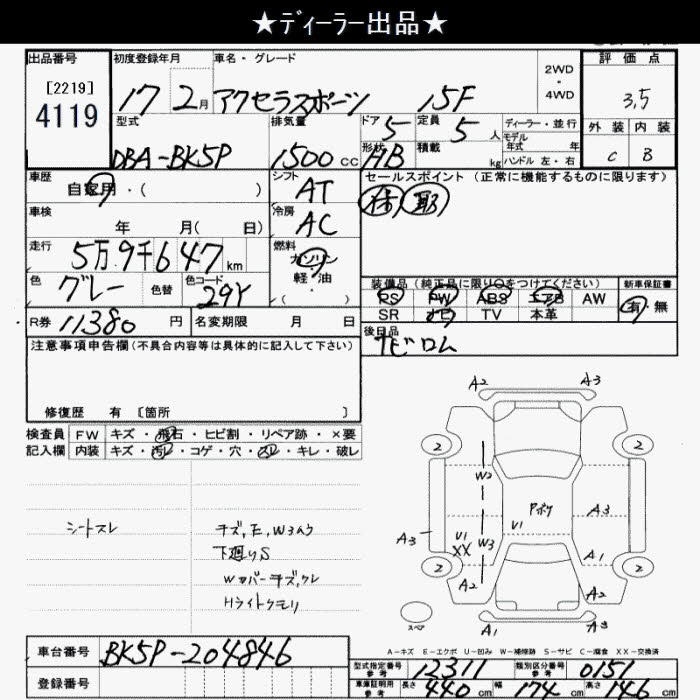 ★ディーラー出品★
出品番号
[2219]
4119
初度登録年月
17 2月
車名・グレード
アクセラスポーツ 15F
2WD・4WD
評価点
3,5
外装 内装
C B
型式
DBA-BK5P
排気量
1500 cc
ドア 5
形状 HB
定員 5 人
積載 kg
ディーラー・並行
モデル年式 年
ハンドル 左・右
車歴
自家用・( )
シフト
AT
セールスポイント(正常に機能するものに限ります)
保 取
車検
年 月( 日)
冷房
AC
走行
5万9千647 km
燃料
ガソリン
軽・油
・( )
色
グレー
色替
色コード
29Y
装備品(純正品に限り○をつけてください)
新車保証書
PS PW ABS エアB AW
SR ナビ TV 本革
有・無
R券 11380 円
名変期限 月 日
後日品
ナビロム
注意事項申告欄(不具合内容等は具体的に記入して下さい)
修復歴 有 [箇所 ]
検査員
記入欄
FW キズ・飛石・ヒビ割・リペア跡・×要
内装 キズ・汚レ・コゲ・穴・スレ・キレ・破レ
シートスレ
キズ,E,W3ハク
下廻りS
Wカバーキズ,クレ
Hライトクモリ
A2 A3
2 2
W2
Pボケ
A3
U1
A3
U1
XX
W3
A1
2 2
A2 A2
スペア
A1 A3
A-キズ E-エクボ U-凹み W-補修跡 S-サビ C-腐食 XX-交換済
車台番号
BK5P-204846
登録番号
型式指定番号
参考
12311
類別区分番号
参考
0151
車庫証明用
参考
長さ 440 cm
幅 174 cm
高さ 146 cm